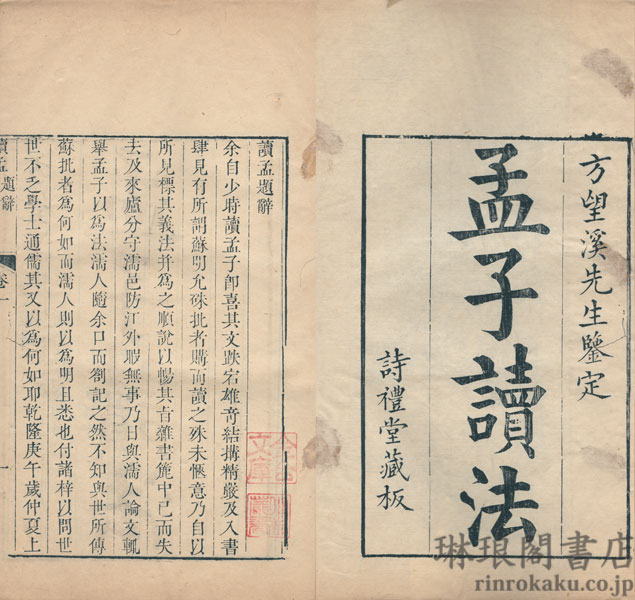 方望溪先生鑒定
孟子讀法
詩禮堂藏板
讀孟題辭
余自少時讀孟子即喜其文跌宕雄奇結搆精嚴及入書
肆見有所謂蘇明允硃批者購而讀之殊未愜意乃自以
所見標其義法并為之順說以暢其旨雜書簏中已而失
去及來廬分守濡邑防江外暇無事乃日與濡人論文輒
舉孟子以為法濡人隨余口而劄記之然不知與世所傳
蘇批者為何如而濡人則以為明且悉也付諸梓以問世
世不乏學士通儒其又以為何如耶乾隆庚午歲仲夏上
讀孟題辭 卷一 一
琳琅閣書店
rinrokaku.co.jp